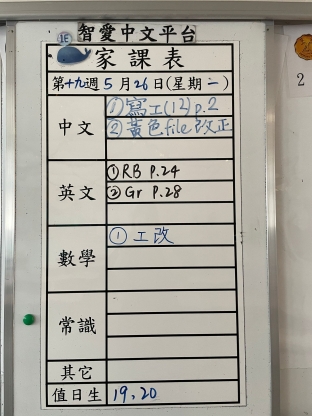 智愛中文平台
1E
家課表
第十九週5月26日(星期二)
中文
①寫工(12)p.2
②黃色file改正
英文
①RB P.24
②Gr P.28
數學
①工改
常識
其它
值日生
19,20
2